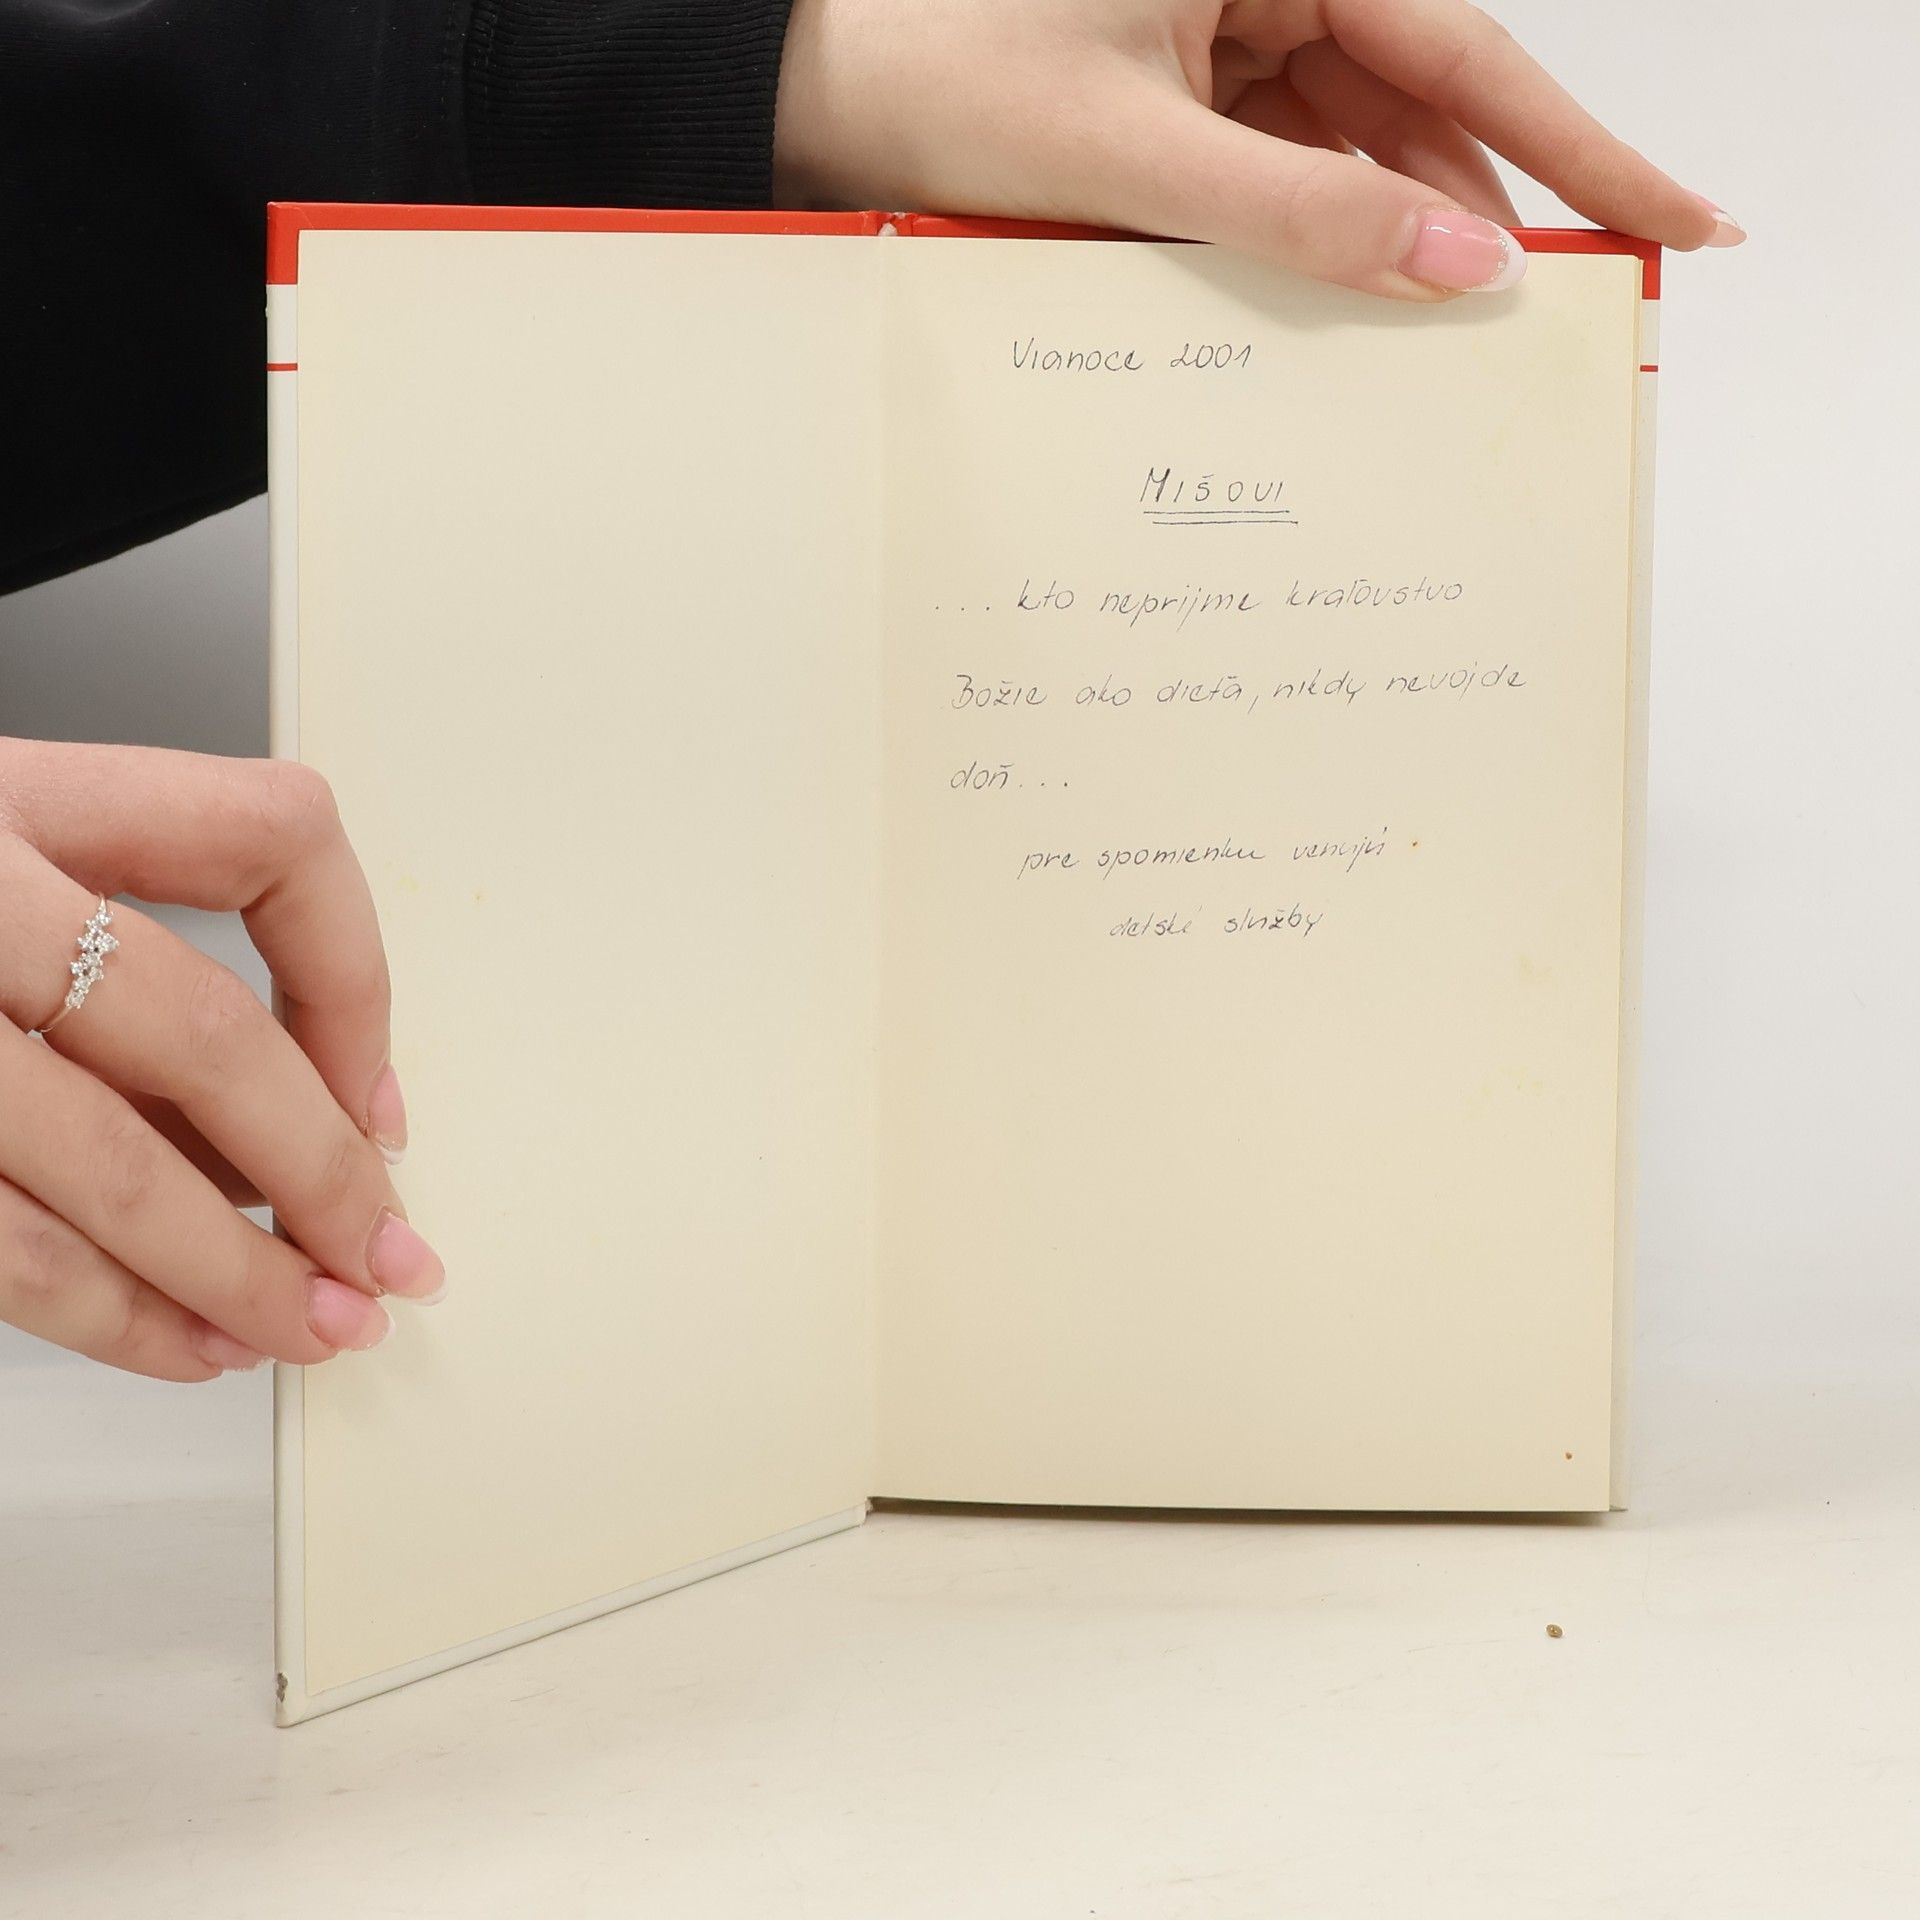 Vianoce 2001
Mišovi
... kto neprijme kraľovstvo
Božie ako dieťa, nikdy nevojde
doň...
pre spomienku venujú
detské služby